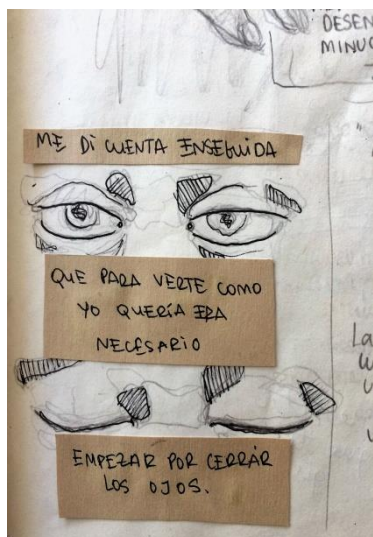 DESEN
MINUC
ME DI CUENTA ENSEGUIDA
QUE PARA VERTE COMO
YO QUERÍA ERA
NECESARIO
La
EMPEZAR POR CERRAR
LOS OJOS.